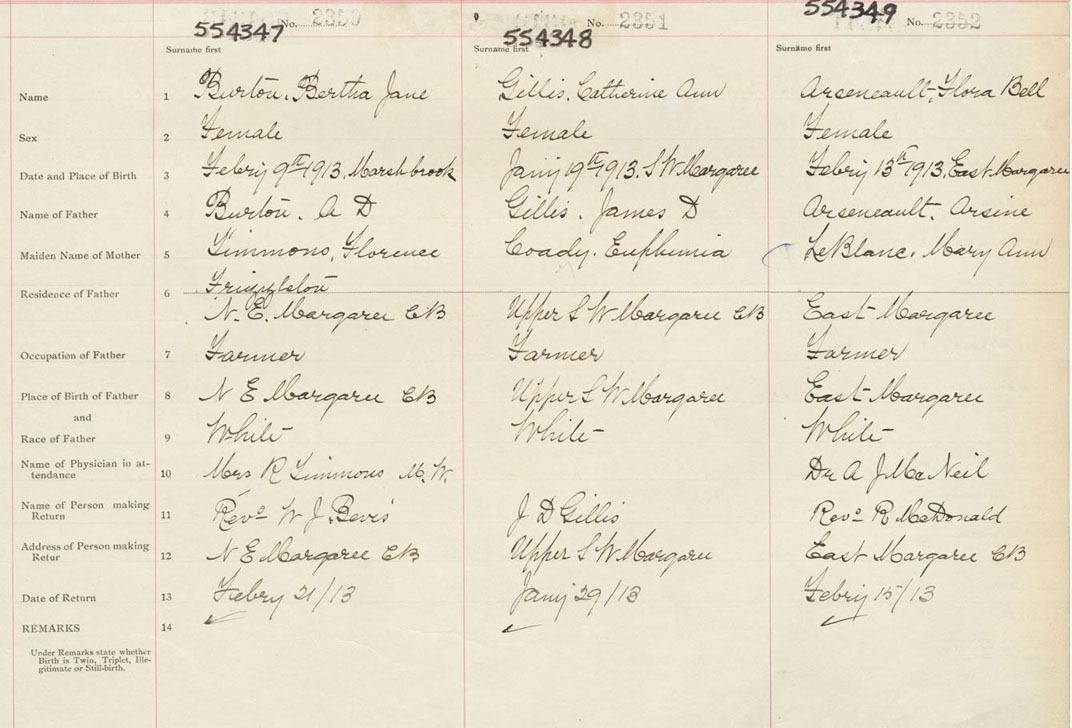 554347 No. 2350 554348 No. 2351 554349 No. 2352
Surname first Surname first Surname first
Name 1 Burton, Bertha Jane Gillis, Catherine Ann Arseneault, Flora Bell
Sex 2 Female Female Female
Date and Place of Birth 3 Febry 9th 1913. Marshbrook Jany 19th 1913. S W Margaree Febry 13th 1913. East Margaree
Name of Father 4 Burton. A D Gillis. James D Arseneault. Arsine
Maiden Name of Mother 5 Timmons, Florence Coady. Euphemia LeBlanc. Mary Ann
Residence of Father 6
N. E. Margaree CB Upper S W Margaree CB East Margaree
Occupation of Father 7 Farmer Farmer Farmer
Place of Birth of Father 8 N E Margaree CB Upper S W Margaree East Margaree
and
Race of Father 9 White White White
Name of Physician in at-
tendance 10 Mrs R Timmons M. W. Dr A J McNeil
Name of Person making
Return 11 Revd W J Bevis J D Gillis Revd R McDonald
Address of Person making
Retur 12 N E Margaree CB Upper S W Margaree East Margaree CB
Date of Return 13 Febry 21/13 Jany 29/13 Febry 15/13
REMARKS 14
Under Remarks state whether
Birth is Twin, Triplet, Ille-
gitimate or Still-birth.